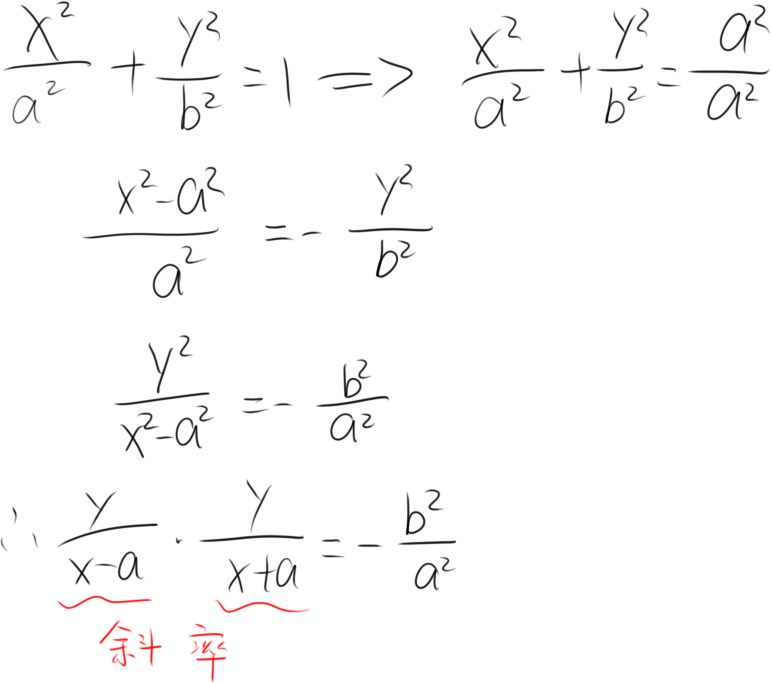 x²/a² + y²/b² = 1 ⇒ x²/a² + y²/b² = a²/a²
(x²-a²)/a² = - y²/b²
y²/(x²-a²) = - b²/a²
∴ y/(x-a) · y/(x+a) = - b²/a²
斜率